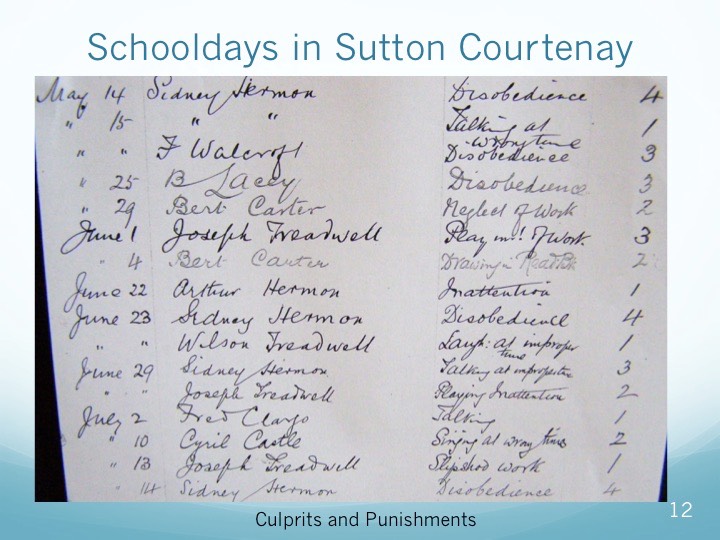 Schooldays in Sutton Courtenay
May 14 Sidney Hermon Disobedience 4
" 15 " " Talking at wrong time 1
" " F Walcroft Disobedience 3
" 25 B Lacey Disobedience 3
" 29 Bert Carter Neglect of Work 2
June 1 Joseph Treadwell Play in of Work 3
" 4 Bert Carter Drawing in 2
June 22 Arthur Hermon Inattention 1
June 23 Sidney Hermon Disobedience 4
" " Wilson Treadwell Laugh: at improper time 1
June 29 Sidney Hermon Talking at improper time 3
" " Joseph Treadwell Playing Inattention 2
July 2 Fred Talking 1
" 10 Cyril Castle Singing at wrong times 2
" 13 Joseph Treadwell Slipshod work 1
" 14 Sidney Hermon Disobedience 4
Culprits and Punishments
12